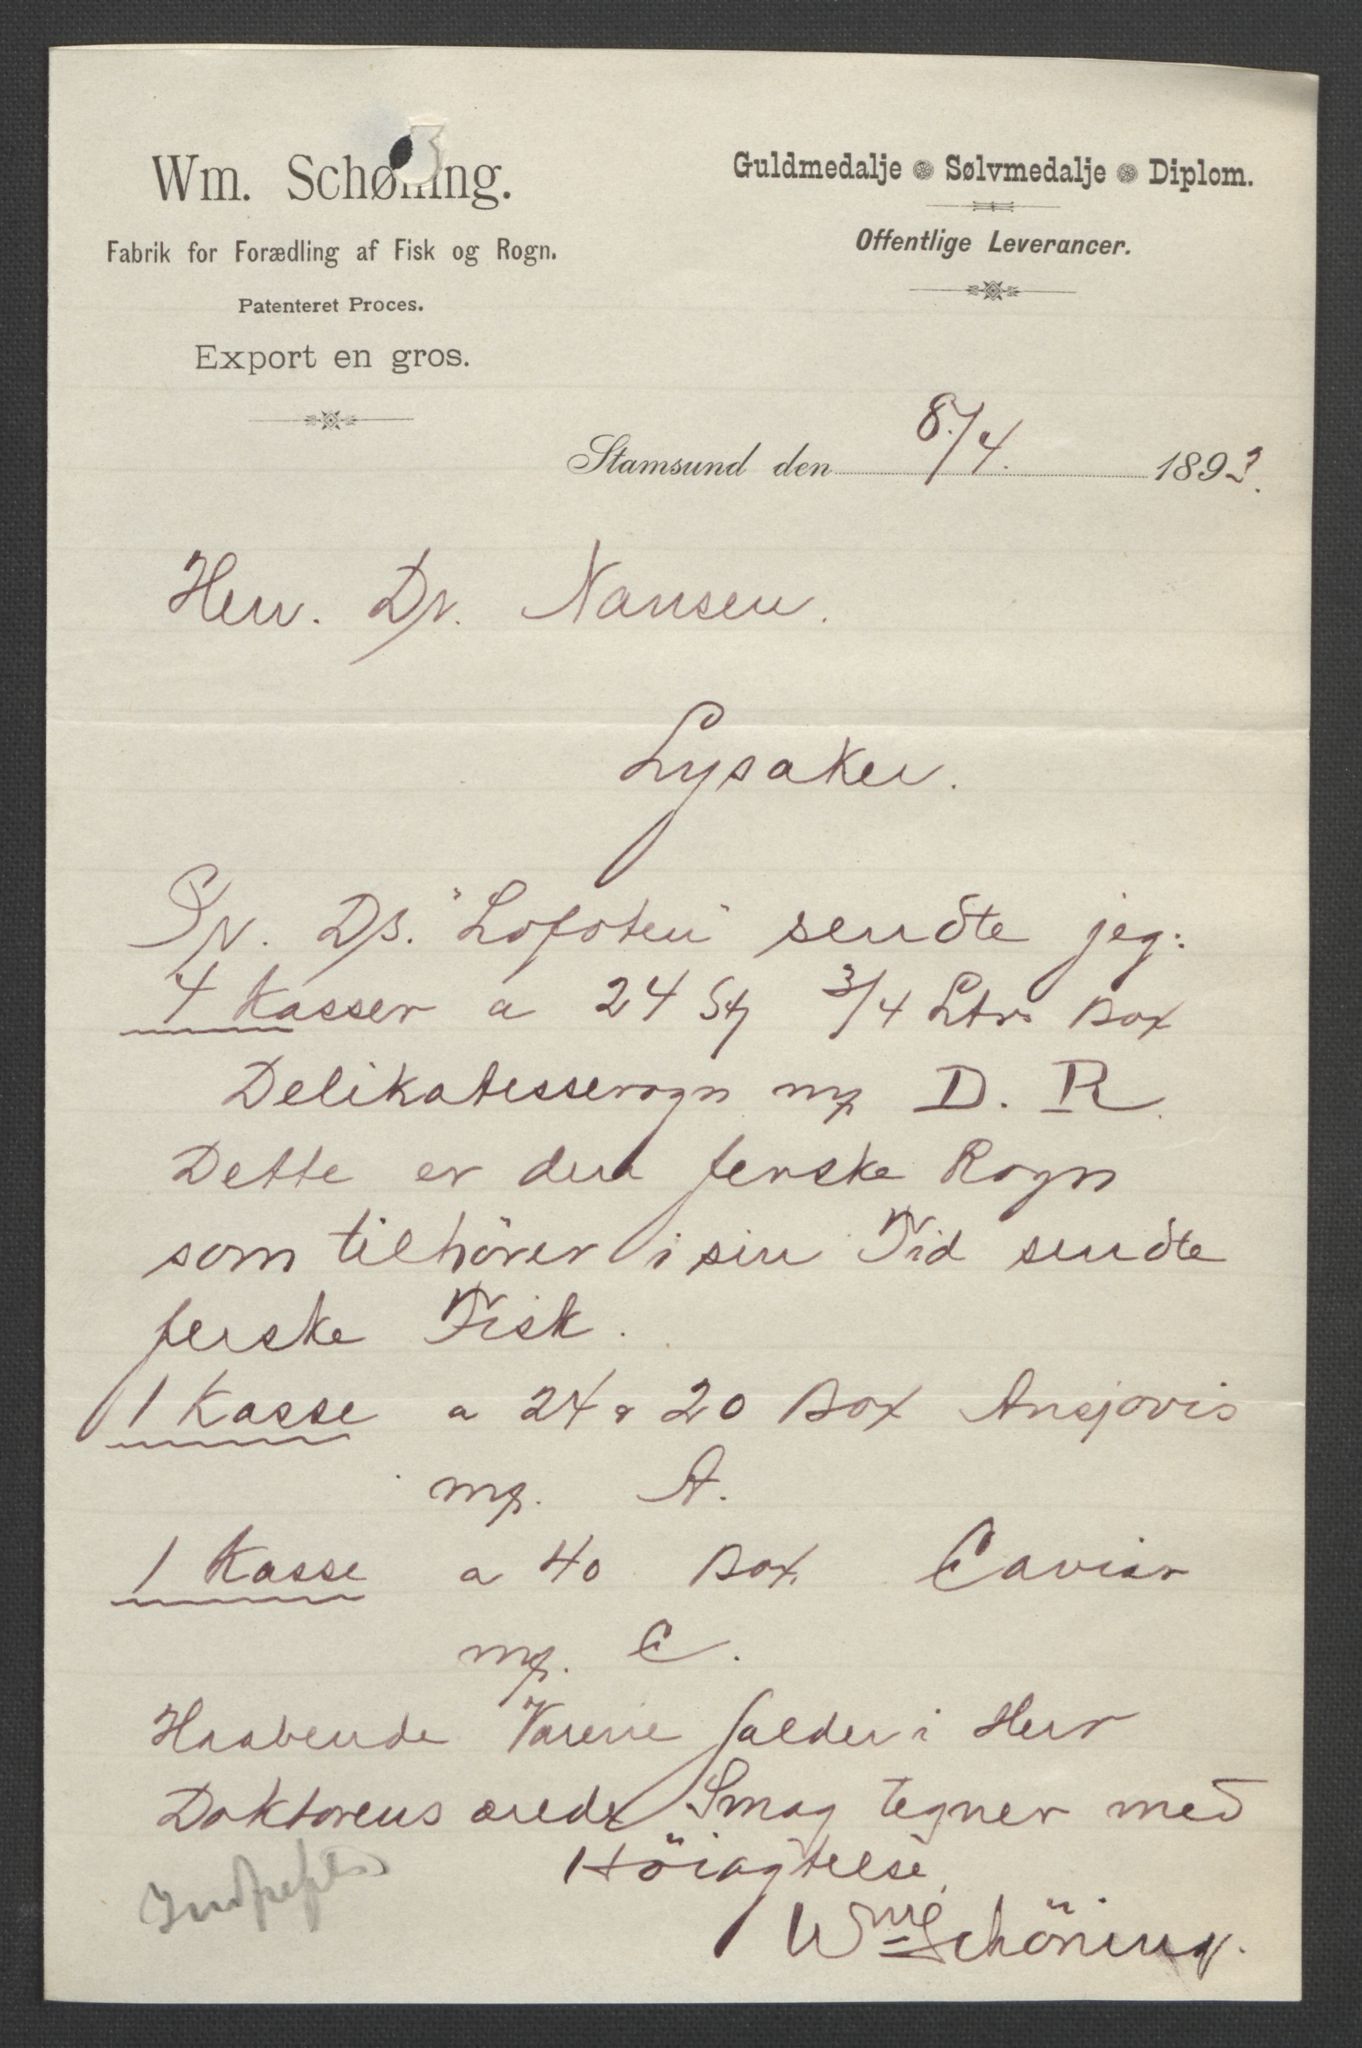 Wm. Schøning.
Fabrik for Forædling af Fisk og Rogn.
Patenteret Proces.
Export en gros.
Guldmedalje Sølvmedalje Diplom.
Offentlige Leverancer.
Stamsund den 8/4. 1893.
Herr. Dr. Nansen.
Lysaker.
Pr. Ds. "Lofoten" sendte jeg:
4 Kasser a 24 St 3/4 Ltrs Box
Delikatesserogn mp D. R.
Dette er den ferske Rogn
som tilhörer i sin Tid sendte
ferske Fisk.
1 Kasse a 24 a 20 Box Ansjovis
mp. A.
1 Kasse a 40 Box Caviar
mp. C.
Haabende Varerne falder i Herr
Doktorens ærede Smag tegner med
Höiagtelse
Wm Schöning.